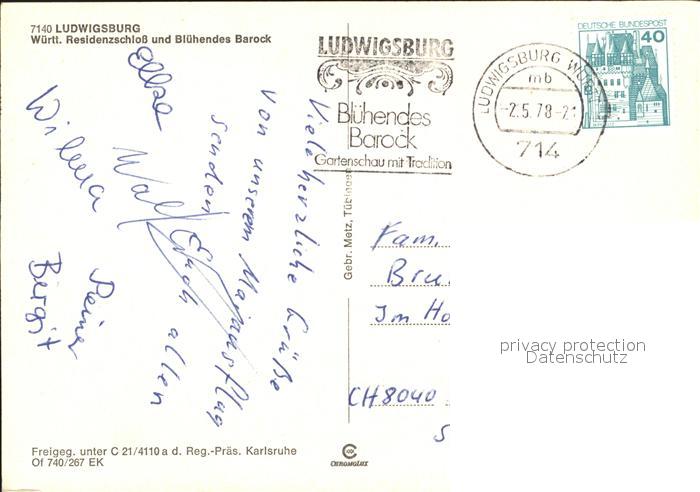 7140 LUDWIGSBURG
Württ. Residenzschloß und Blühendes Barock
LUDWIGSBURG
Blühendes
Barock
Gartenschau mit Tradition
LUDWIGSBURG WÜRTT
mb
-2.5.78-21
714
DEUTSCHE BUNDESPOST
40
Viele herzliche Grüße
von unserem Maiausflug
senden Euch allen
Wolf
Elke
Wilma
Reiner
Birgit
Gebr. Metz, Tübingen
Fam.
Bru
Im Ho
CH 8040
S
privacy protection
Datenschutz
Freigeg. unter C 21/4110 a d. Reg.-Präs. Karlsruhe
Of 740/267 EK
CHROMOLUX